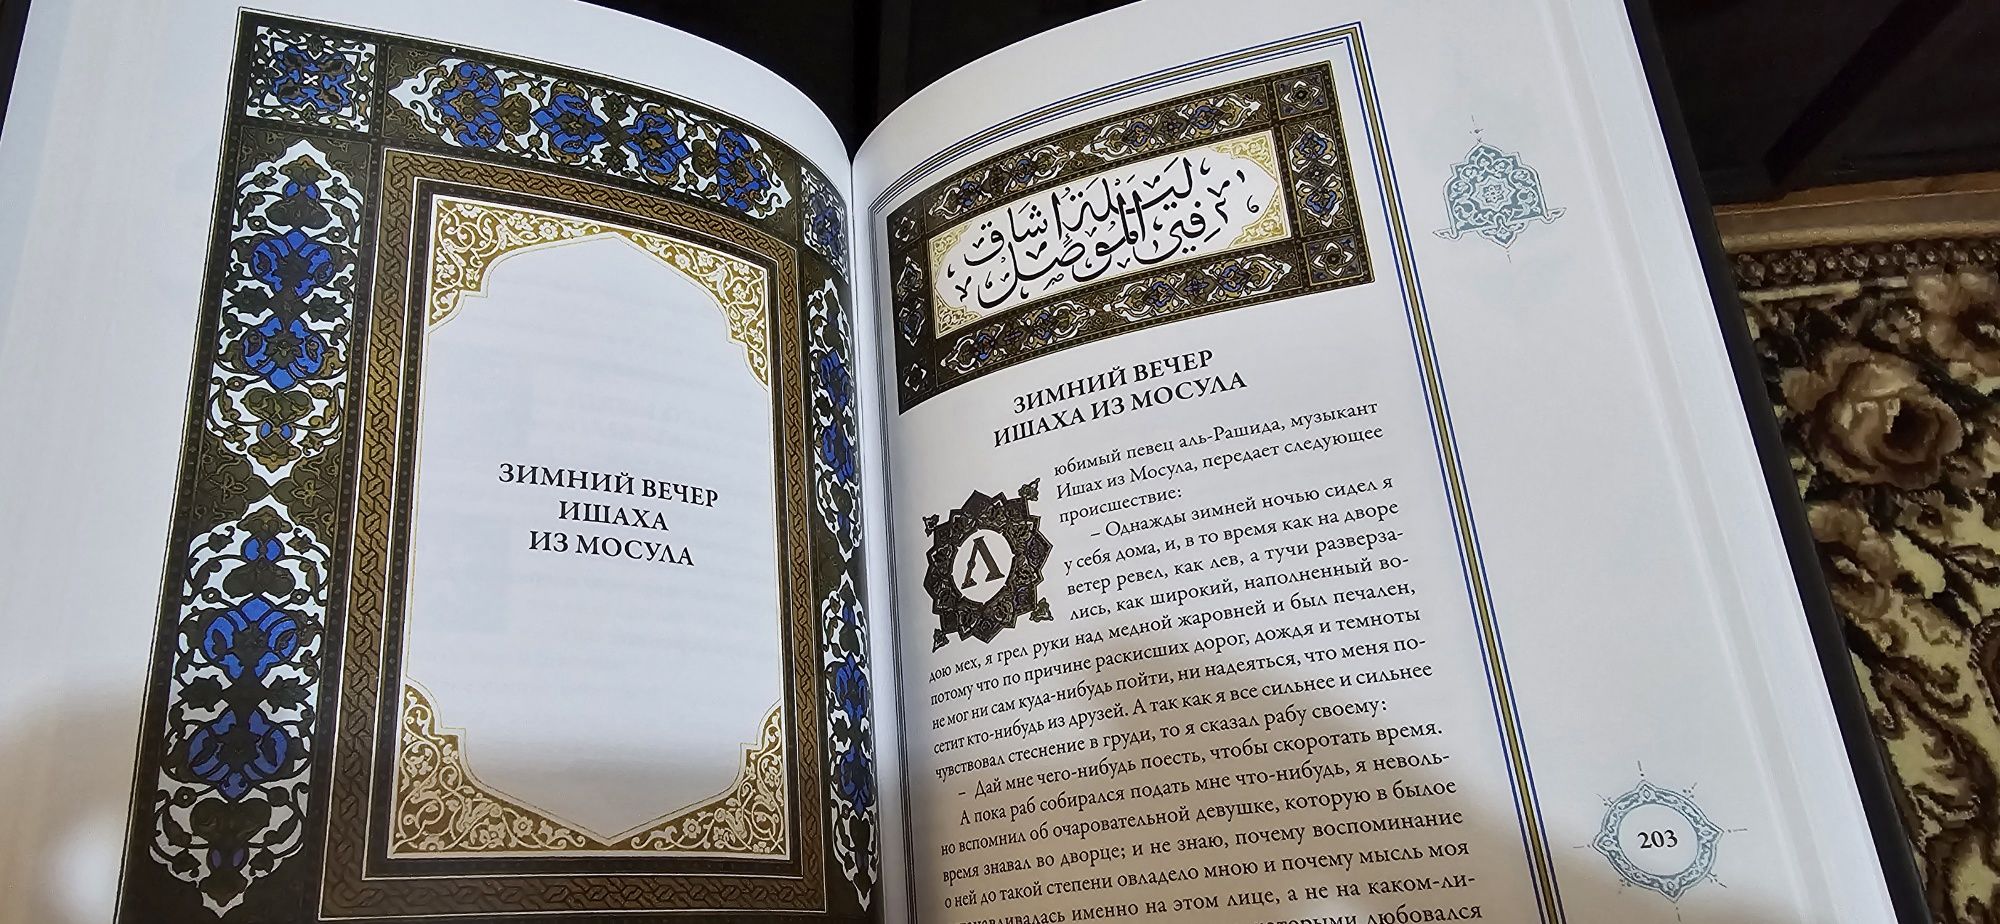 ЗИМНИЙ ВЕЧЕР
ИШАХА
ИЗ МОСУЛА
ليلة إشاق
في الموصل
ЗИМНИЙ ВЕЧЕР
ИШАХА ИЗ МОСУЛА
Л
юбимый певец аль-Рашида, музыкант
Ишах из Мосула, передает следующее
происшествие:
– Однажды зимней ночью сидел я
у себя дома, и, в то время как на дворе
ветер ревел, как лев, а тучи разверза-
лись, как широкий, наполненный во-
дою мех, я грел руки над медной жаровней и был печален,
потому что по причине раскисших дорог, дождя и темноты
не мог ни сам куда-нибудь пойти, ни надеяться, что меня по-
сетит кто-нибудь из друзей. А так как я все сильнее и сильнее
чувствовал стеснение в груди, то я сказал рабу своему:
– Дай мне чего-нибудь поесть, чтобы скоротать время.
А пока раб собирался подать мне что-нибудь, я неволь-
но вспомнил об очаровательной девушке, которую в былое
время знавал во дворце; и не знаю, почему воспоминание
о ней до такой степени овладело мною и почему мысль моя
именно на этом лице, а не на каком-ли-
любовался
203